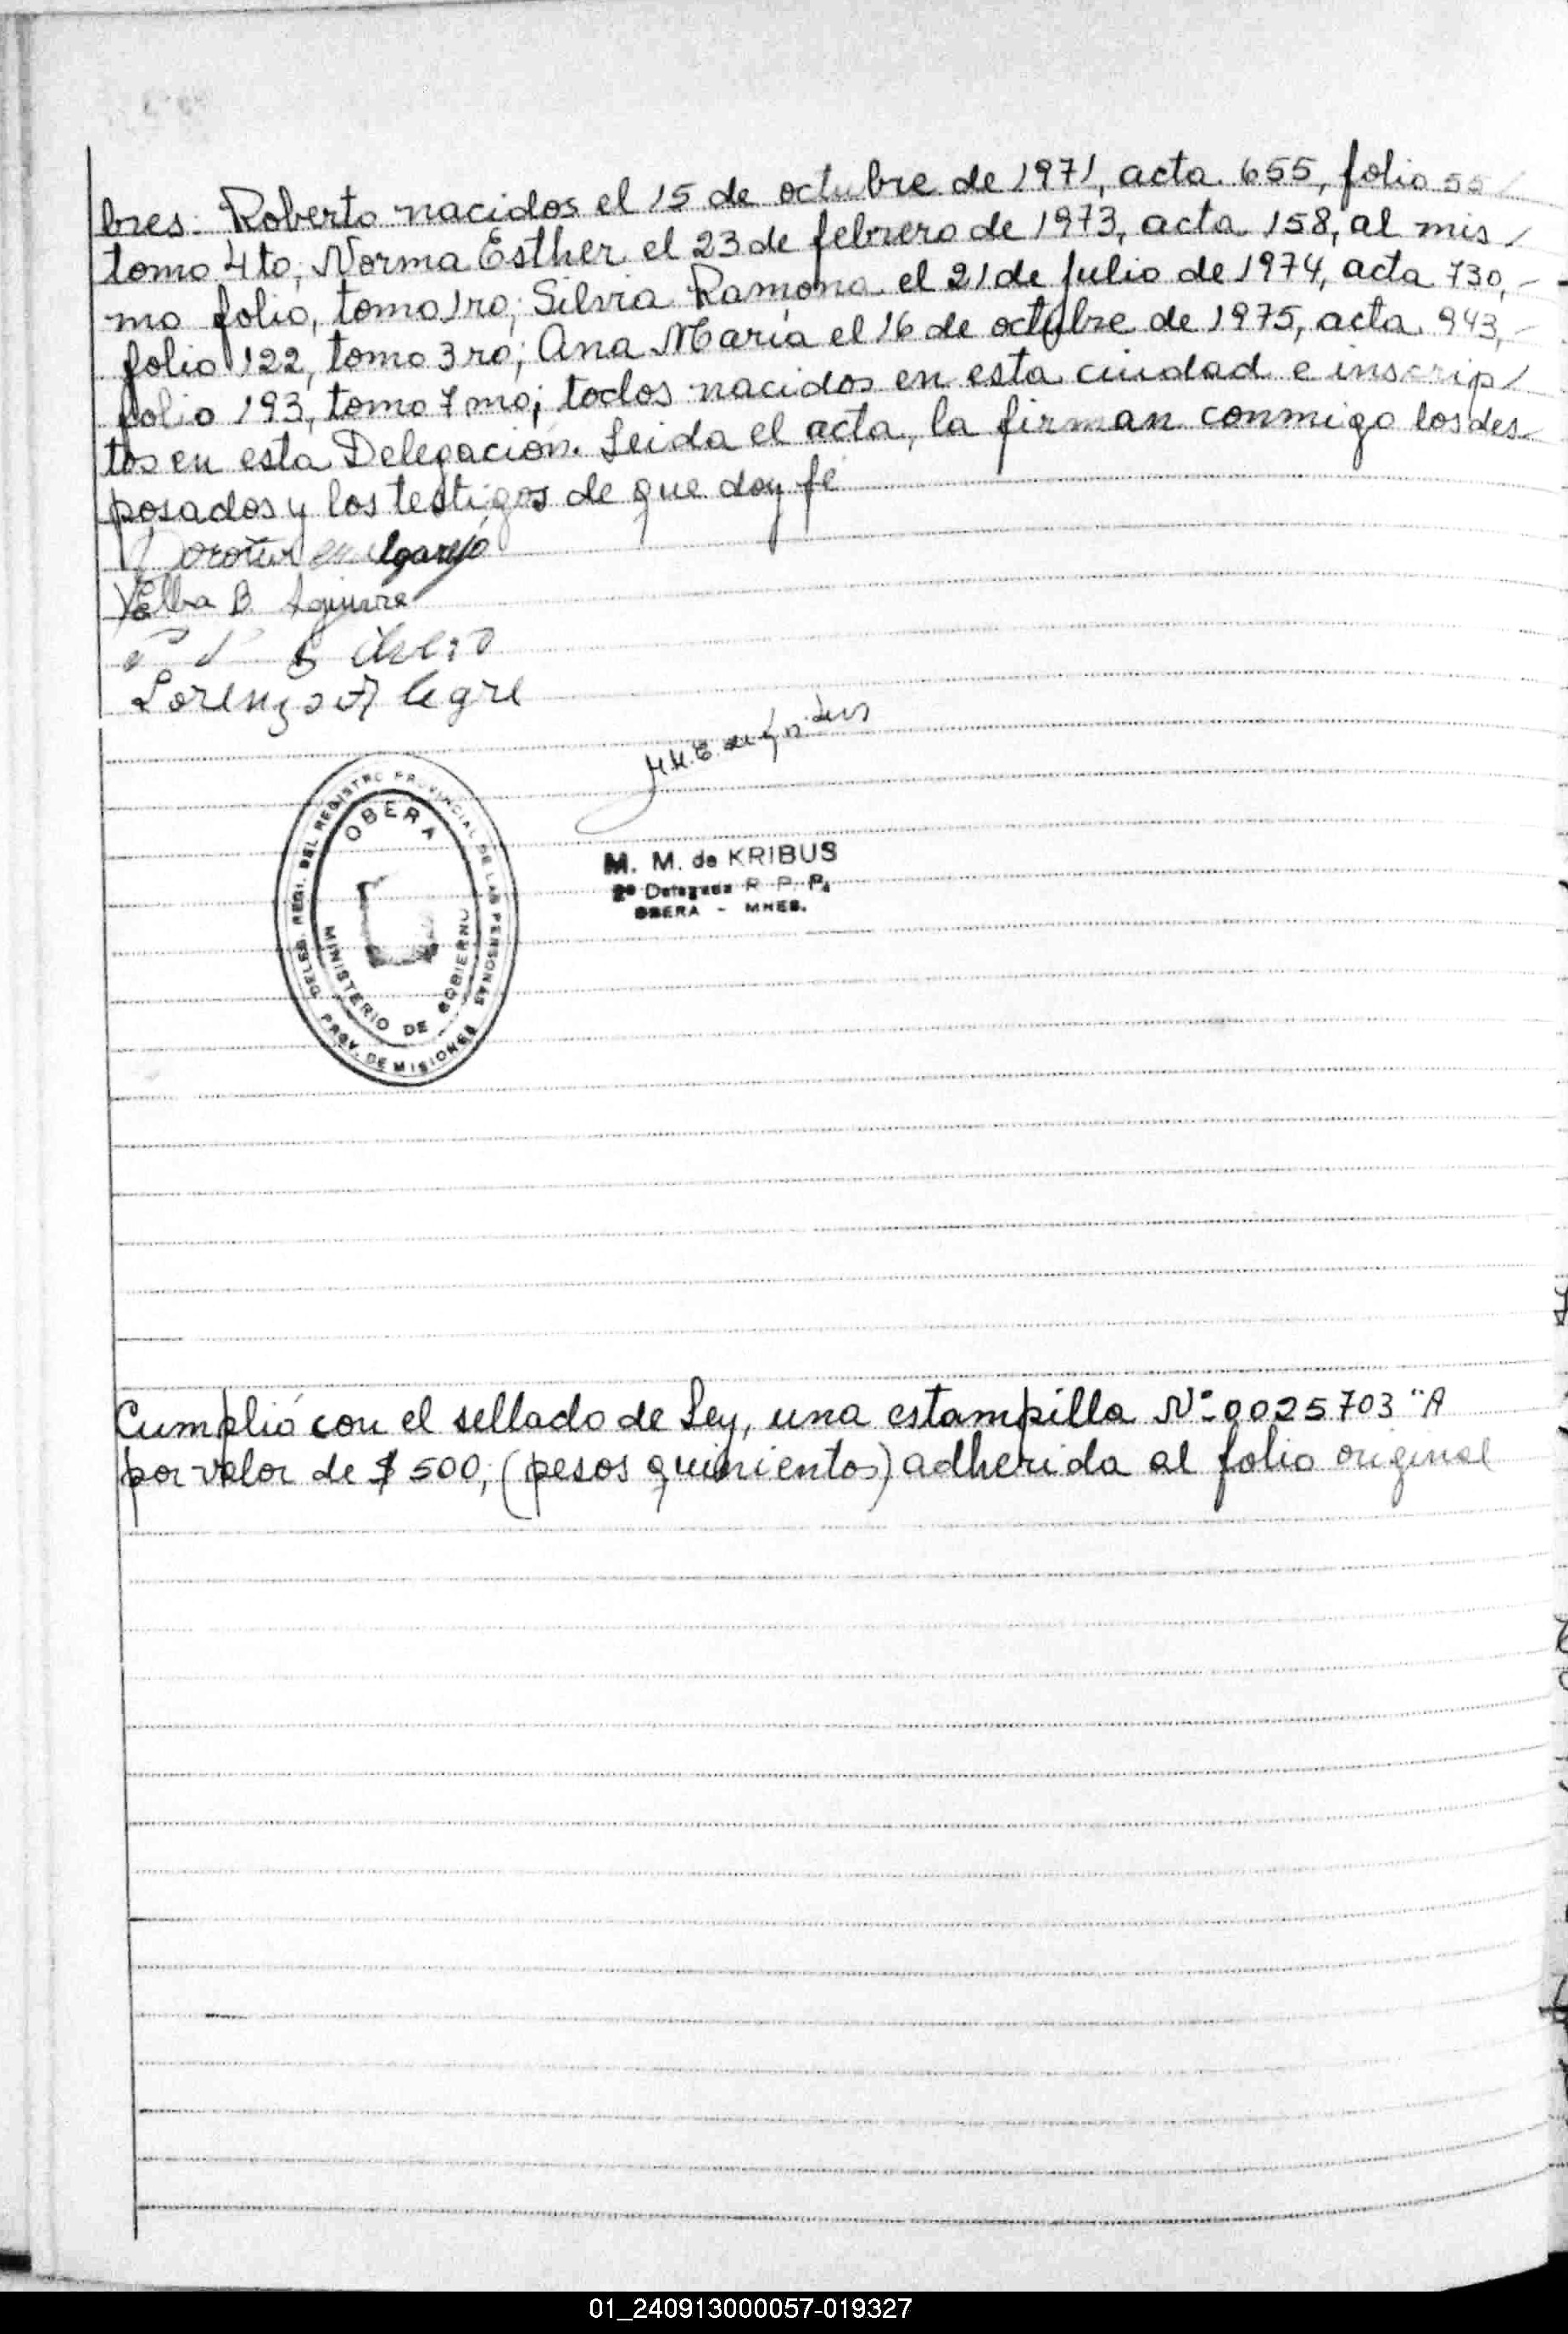 bres: Roberto nacidos el 15 de octubre de 1971, acta 655, folio 55/
tomo 4to; Norma Esther el 23 de febrero de 1973, acta 158, al mis/
mo folio, tomo 1ro; Silvia Ramona el 21 de Julio de 1974, acta 730,-
folio 122, tomo 3ro; Ana María el 16 de octubre de 1975, acta 943,-
folio 193, tomo 7mo; todos nacidos en esta ciudad e inscrip/
tos en esta Delegación. Leida el acta, la firman conmigo los des
posados y los testigos de que doy fé
Elba B. Aguirre
Lorenzo Alegre
DELEG. REGI. DEL REGISTRO PROVINCIAL DE LAS PERSONAS
OBERA
MINISTERIO DE GOBIERNO
PROV. DE MISIONES
M. M. de KRIBUS
2º Delegada R. P. P.
OBERA - MNES.
Cumplió con el sellado de Ley, una estampilla Nº 0025703 "A
por valor de $ 500, (pesos quinientos) adherida al folio original
01_240913000057-019327